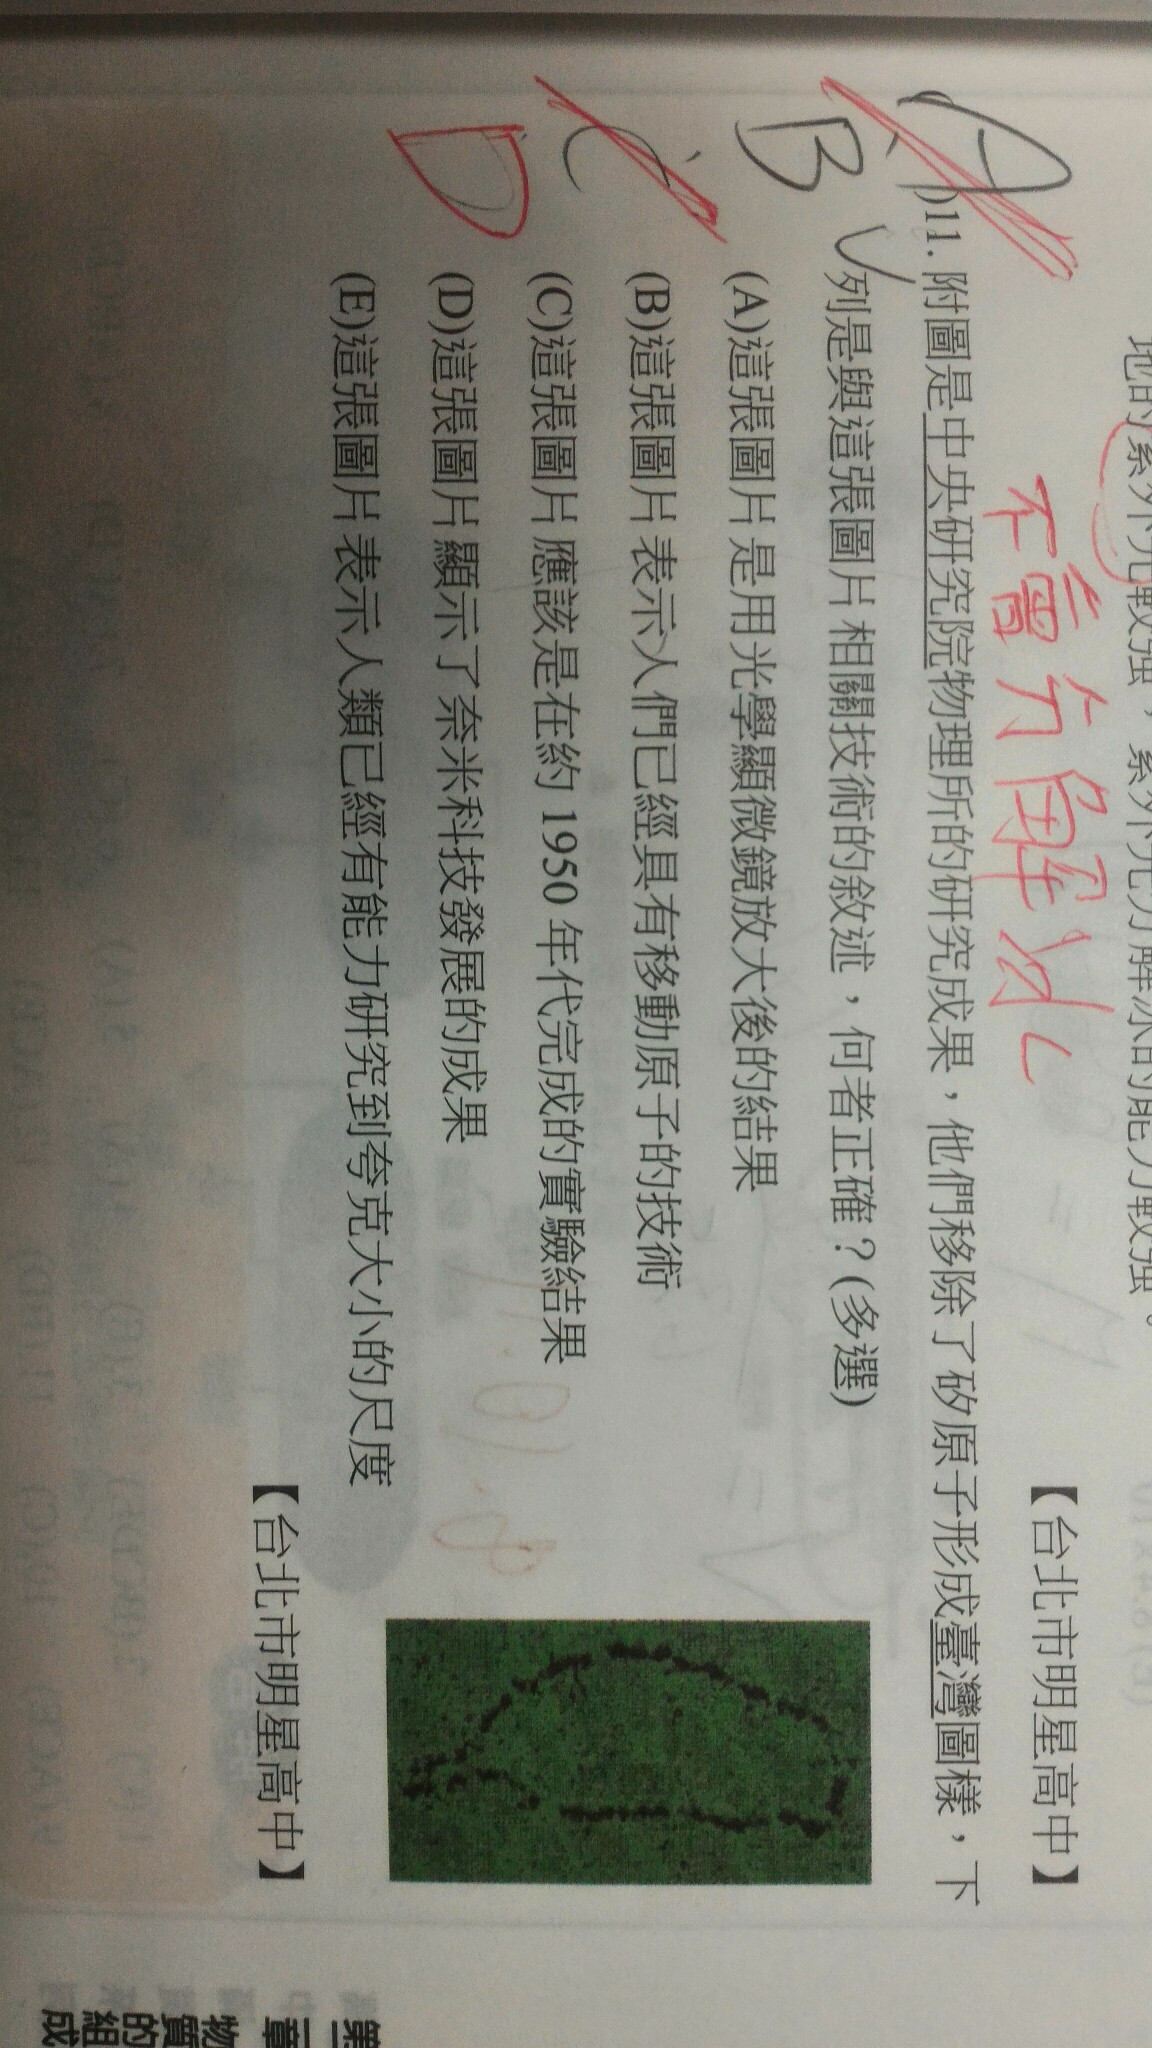 不會分解水
【台北市明星高中】
A B C D
)11. 附圖是中央研究院物理所的研究成果，他們移除了矽原子形成臺灣圖樣，下
列是與這張圖片相關技術的敘述，何者正確？(多選)
(A)這張圖片是用光學顯微鏡放大後的結果
(B)這張圖片表示人們已經具有移動原子的技術
(C)這張圖片應該是在約 1950 年代完成的實驗結果
(D)這張圖片顯示了奈米科技發展的成果
(E)這張圖片表示人類已經有能力研究到夸克大小的尺度
【台北市明星高中】
第二章
物質的組成